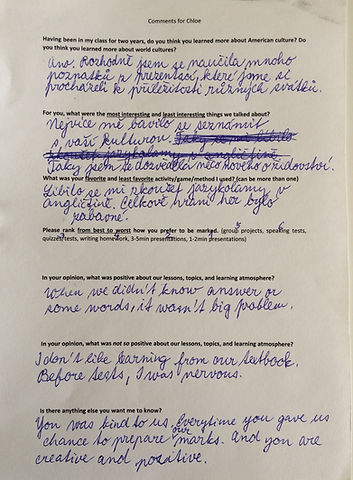 Comments for Chloe
Having been in my class for two years, do you think you learned more about American culture? Do
you think you learned more about world cultures?
Ano. Rozhodně jsem se naučila mnoho
poznatků z prezentací, které jsme si
procházeli k příležitosti různých svátků.
For you, what were the most interesting and least interesting things we talked about?
Nejvíce mě bavilo se seznámit
s vaší kulturou. Taky se mi líbilo
zkoušet jazykolamy v angličtině.
Taky jsem se dozvěděla něco nového o židovství.
What was your favorite and least favorite activity/game/method I used? (can be more than one)
Líbilo se mi zkoušet jazykolamy v
angličtině. Celkově hraní her bylo
zábavné.
Please rank from best to worst how you prefer to be marked. (group projects, speaking tests,
quizzes/tests, writing homework, 3-5min presentations, 1-2min presentations)
In your opinion, what was positive about our lessons, topics, and learning atmosphere?
When we didn't know answer or
some words, it wasn't big problem.
In your opinion, what was not so positive about our lessons, topics, and learning atmosphere?
I don't like learning from our textbook.
Before tests, I was nervous.
Is there anything else you want me to know?
You was kind to us. Everytime you gave us
chance to prepare our marks. And you are
creative and positive.